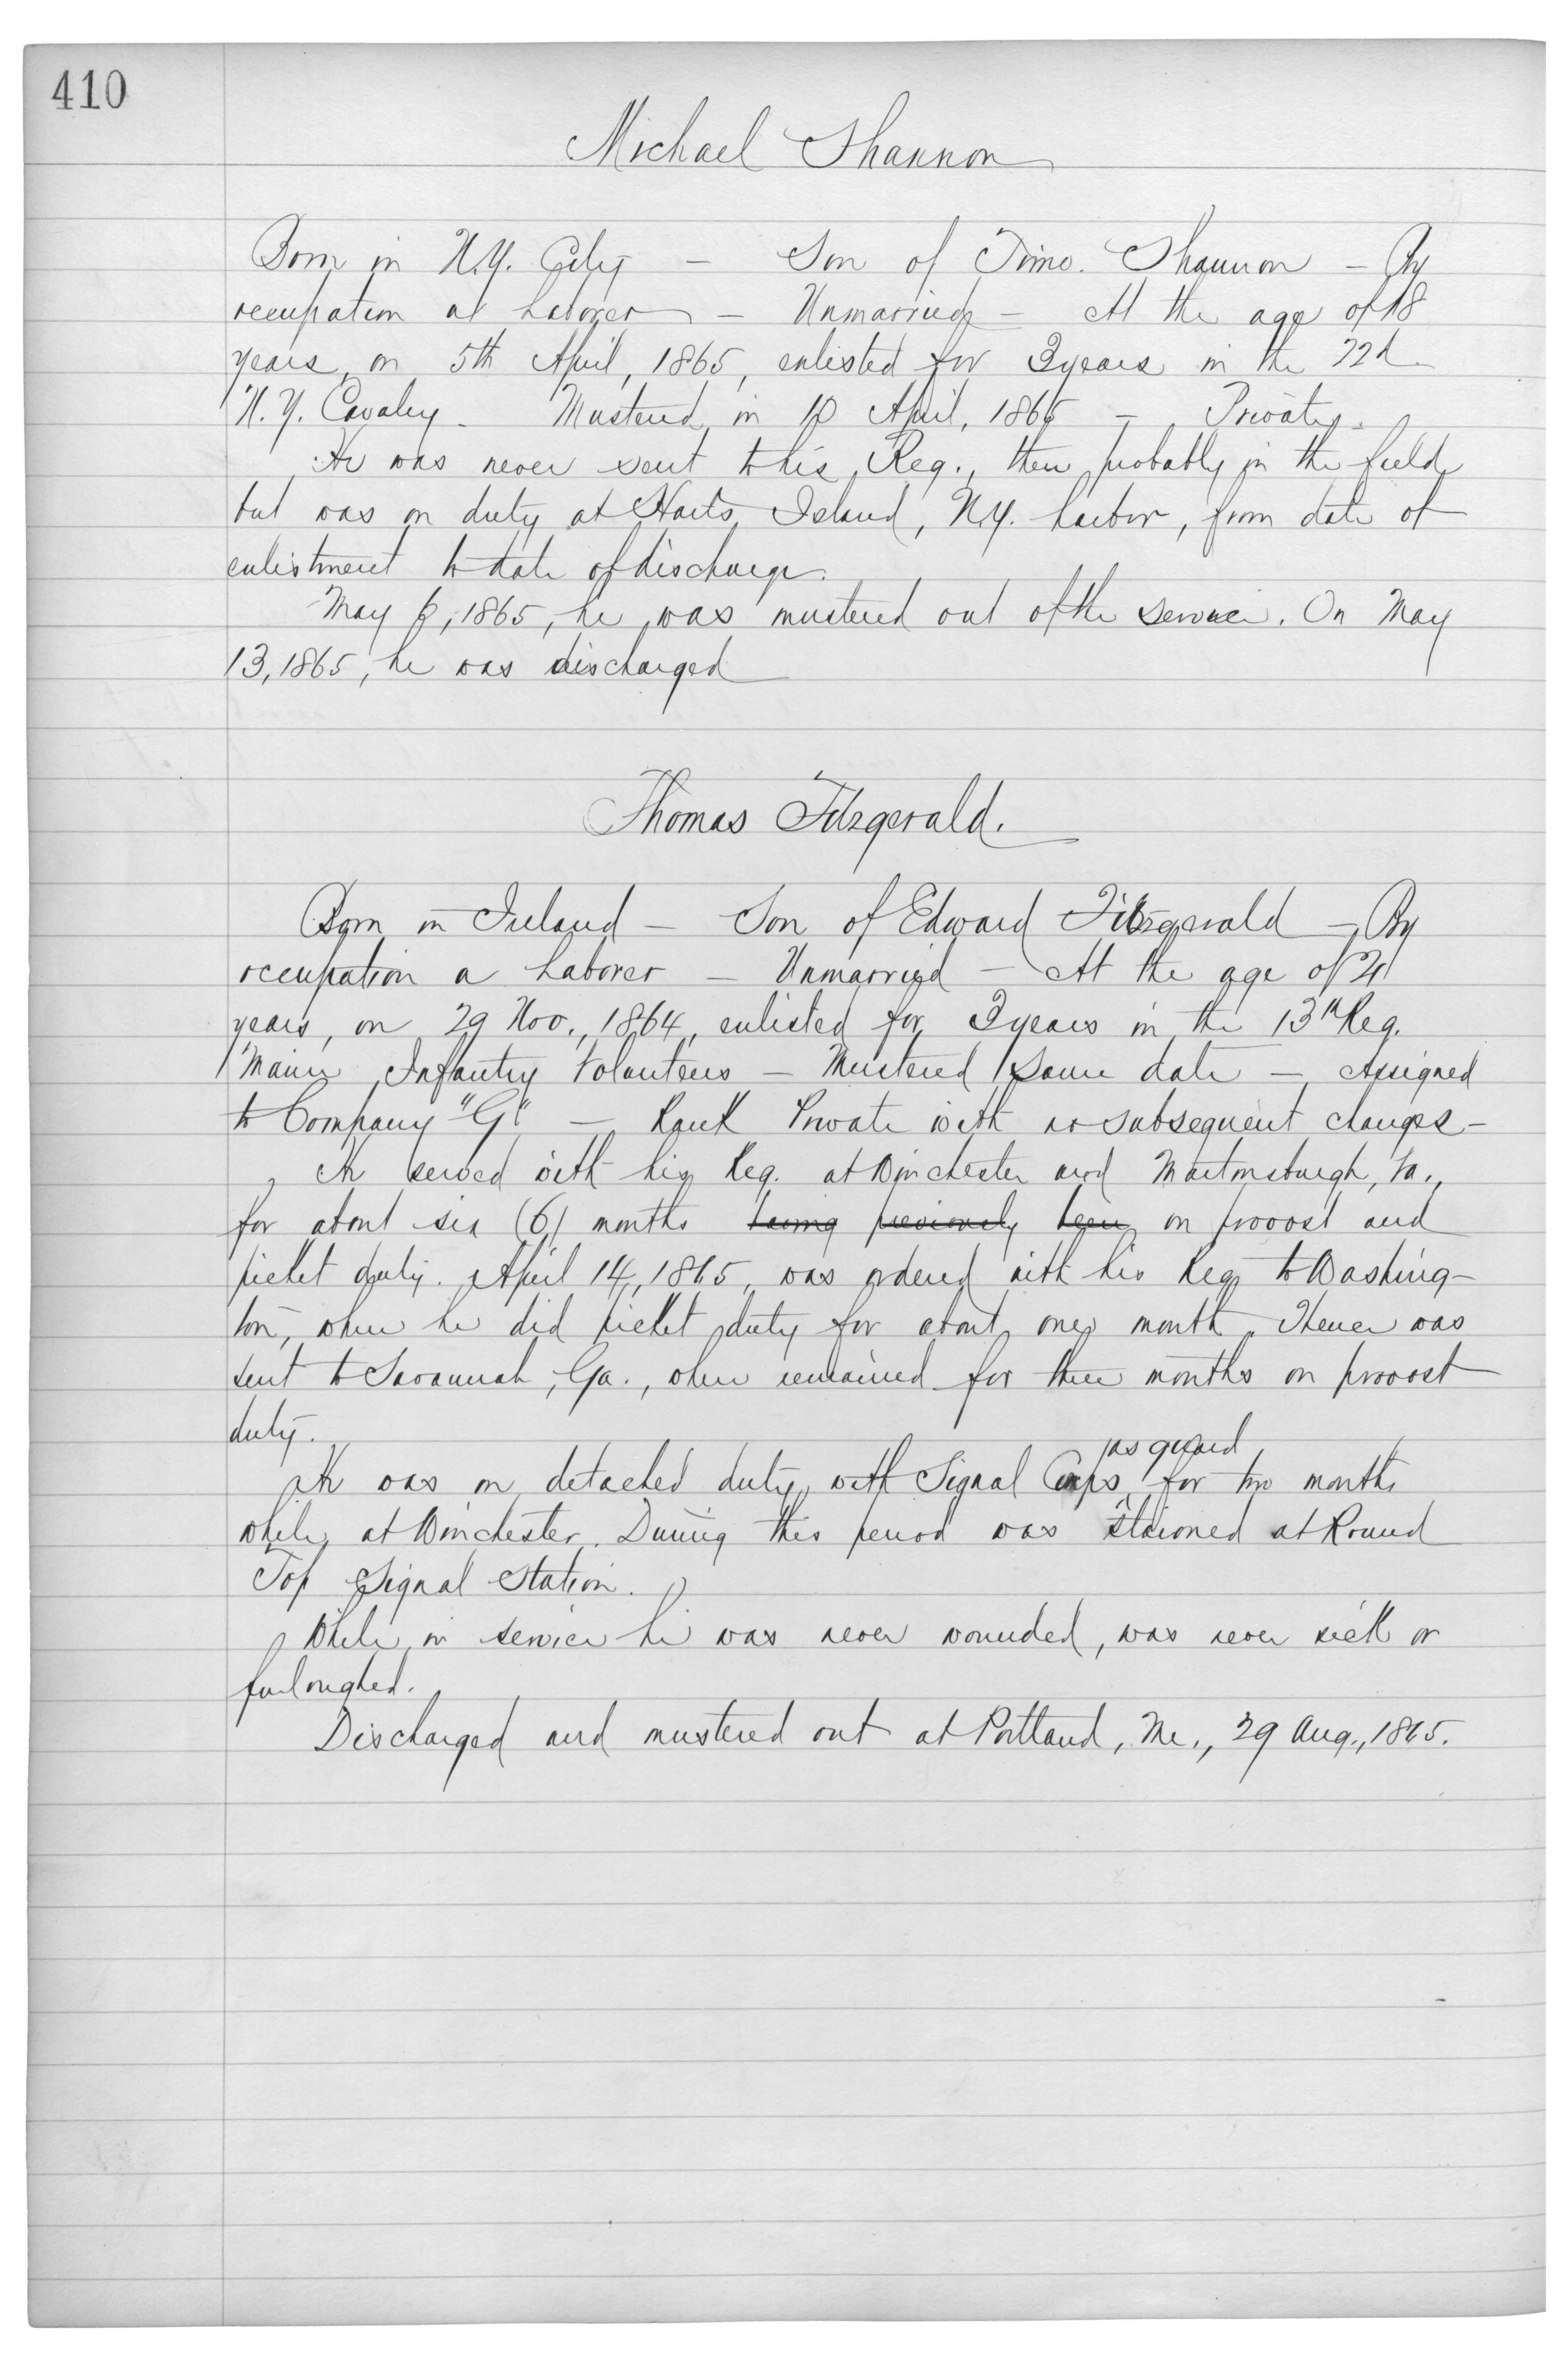 410
Michael Shannon
Born in N.Y. City – Son of Timo. Shannon – By
occupation a Laborer – Unmarried – At the age of 18
years, on 5th April, 1865, enlisted for 3 years in the 22d
N.Y. Cavalry. Mustered in 10 April, 1865 – Private.
He was never sent to his Reg., then probably in the field
but was on duty at Harts Island, N.Y. harbor, from date of
enlistment to date of discharge.
May 6, 1865, he was mustered out of the service. On May
13, 1865, he was discharged
Thomas Fitzgerald.
Born in Ireland – Son of Edward Fitzgerald – By
occupation a Laborer – Unmarried – At the age of 21
years, on 29 Nov., 1864, enlisted for 3 years in the 13th Reg.
Maine Infantry Volunteers – Mustered same date – Assigned
to Company "G" – Rank Private with no subsequent changes –
He served with his Reg. at Winchester and Martinsburgh, Va.,
for about six (6) months having previously been on provost and
picket duty. April 14, 1865, was ordered with his Reg. to Washing-
ton, where he did picket duty for about one month. Thence was
sent to Savannah, Ga., where remained for three months on provost
duty.
He was on detached duty with Signal Corps, as guard for two months
while at Winchester. During this period was staioned at Round
Top Signal Station.
While in service he was never wounded, was never sick or
furloughed.
Discharged and mustered out at Portland, Me., 29 Aug., 1865.